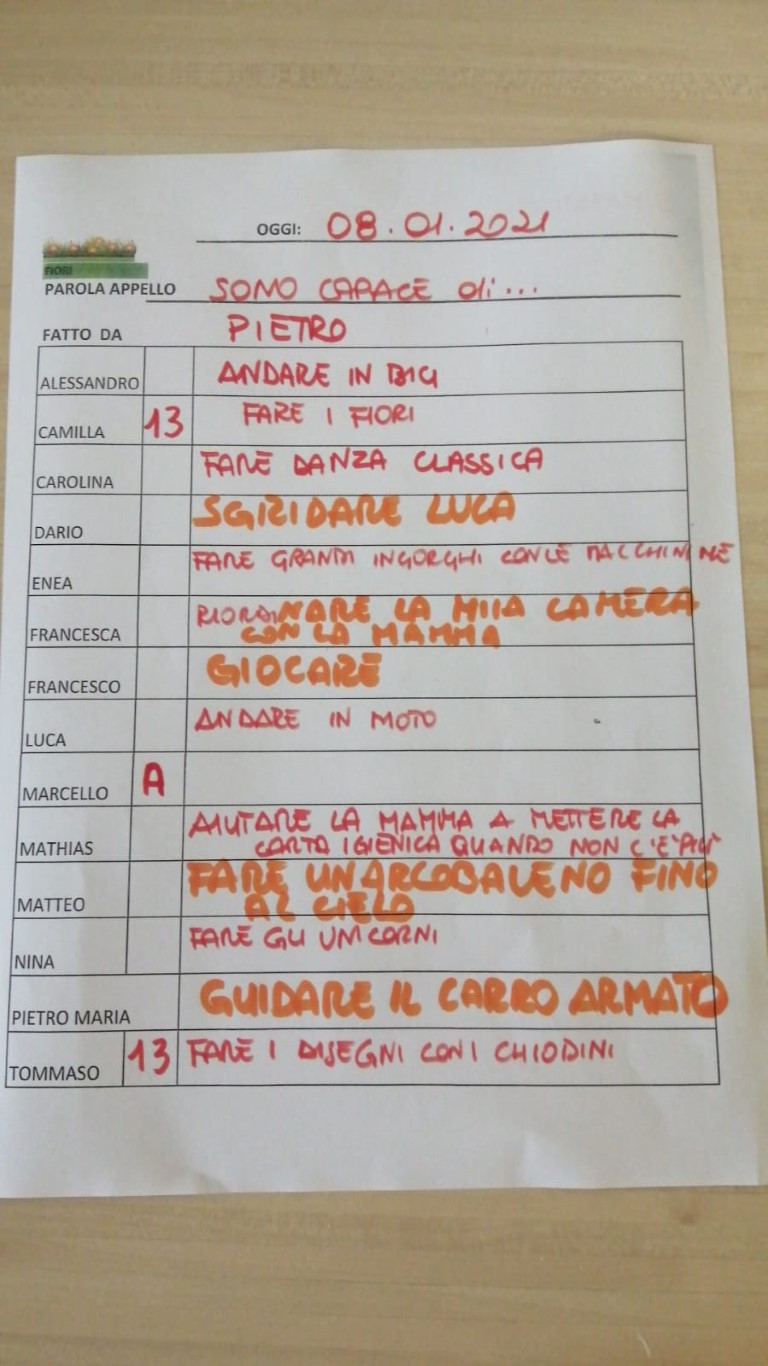 OGGI: 08.01.2021
FIORI
PAROLA APPELLO SONO CAPACE di...
FATTO DA PIETRO
ALESSANDRO ANDARE IN BICI
CAMILLA 13 FARE I FIORI
CAROLINA FARE DANZA CLASSICA
DARIO SGRIDARE LUCA
ENEA FARE GRANDI INGORGHI CON LE MACCHININE
FRANCESCA RIORDINARE LA MIA CAMERA
CON LA MAMMA
FRANCESCO GIOCARE
LUCA ANDARE IN MOTO
MARCELLO A
MATHIAS AIUTARE LA MAMMA A METTERE LA
CARTA IGIENICA QUANDO NON C'E' PIU'
MATTEO FARE UN ARCOBALENO FINO
AL CIELO
NINA FARE GLI UNICORNI
PIETRO MARIA GUIDARE IL CARRO ARMATO
TOMMASO 13 FARE I DISEGNI CON I CHIODINI